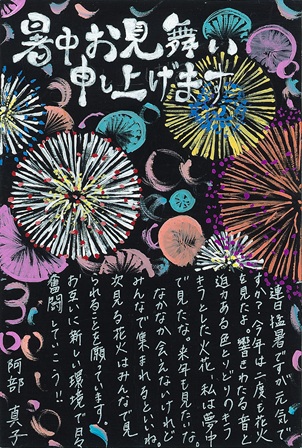 暑中お見舞い
申し上げます
連日猛暑ですが元気で
すか？今年は一度も花火
を見たよ。響きわたる音と
迫力ある色とりどりのきら
きらとした火花。私は夢
で見たな。来年も見たいな。
なかなか会えないけれど
みんなで集まれるといいね。
次見る花火はみんなで見
られることを願っています。
お互いに新しい環境で日々
奮闘していこう!!
阿部 真子